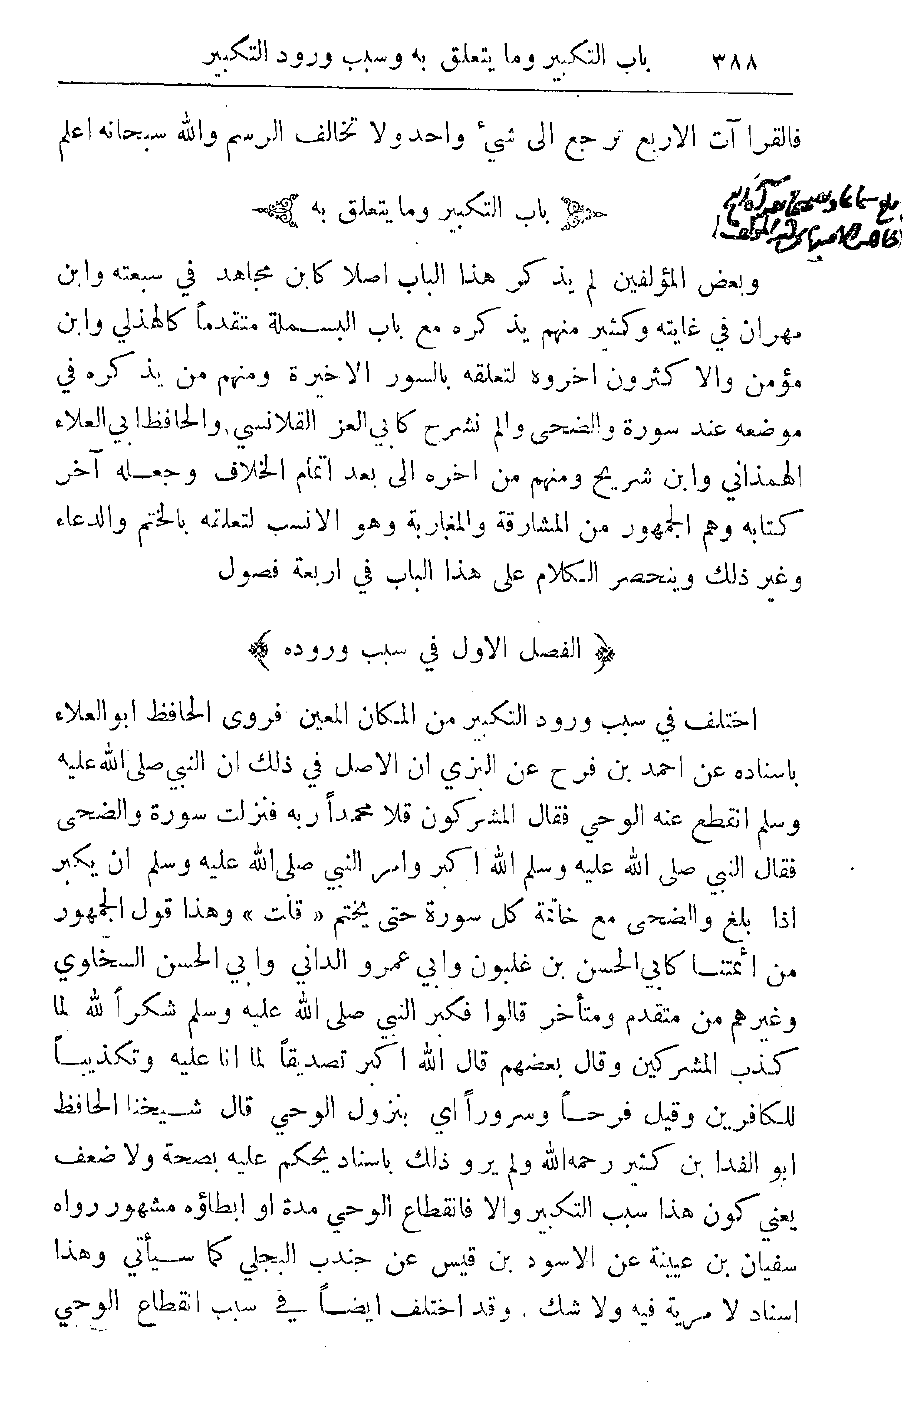 ٣٨٨ باب التكبير وما يتعلق به وسبب ورود التكبير
فالقرا آت الاربع ترجع الى شيء واحد ولا تخالف الرسم والله سبحانه اعلم
باب التكبير وما يتعلق به
وبعض المؤلفين لم يذكر هذا الباب اصلا كابن مجاهد في سبعته وابن
مهران في غايته وكثير منهم يذكره مع باب البسملة متقدماً كالهذلي وابن
مؤمن والاكثرون اخروه لتعلقه بالسور الاخيرة ومنهم من يذكره في
موضعه عند سورة والضحى والم نشرح كابي العز القلانسي, والحافظ ابي العلاء
الهمذاني وابن شريح ومنهم من اخره الى بعد اتمام الخلاف وجعله آخر
كتابه وهم الجمهور من المشارقة والمغاربة وهو الانسب لتعلقه بالختم والدعاء
وغير ذلك وينحصر الكلام على هذا الباب في اربعة فصول
﴿ الفصل الاول في سبب وروده ﴾
اختلف في سبب ورود التكبير من المكان المعين فروى الحافظ ابو العلاء
باسناده عن احمد بن فرح عن البزي ان الاصل في ذلك ان النبي صلى الله عليه
وسلم انقطع عنه الوحي فقال المشركون قلا محمداً ربه فنزلت سورة والضحى
فقال النبي صلى الله عليه وسلم الله اكبر وامر النبي صلى الله عليه وسلم ان يكبر
اذا بلغ والضحى مع خاتمة كل سورة حتى يختم « قلت » وهذا قول الجمهور
من أئمتنا كابي الحسن بن غلبون وابي عمرو الداني وابي الحسن السخاوي
وغيرهم من متقدم ومتأخر قالوا فكبر النبي صلى الله عليه وسلم شكراً لله لما
كذب المشركين وقال بعضهم قال الله اكبر تصديقاً لما انا عليه وتكذيباً
للكافرين وقيل فرحاً وسروراً اي بنزول الوحي قال شيخنا الحافظ
ابو الفدا بن كثير رحمه الله ولم يرو ذلك باسناد يحكم عليه بصحة ولا ضعف
يعني كون هذا سبب التكبير والا فانقطاع الوحي مدة او ابطاؤه مشهور رواه
سفيان بن عيينة عن الاسود بن قيس عن جندب البجلي كما سيأتي وهذا
اسناد لا مرية فيه ولا شك . وقد اختلف ايضاً في سبب انقطاع الوحي